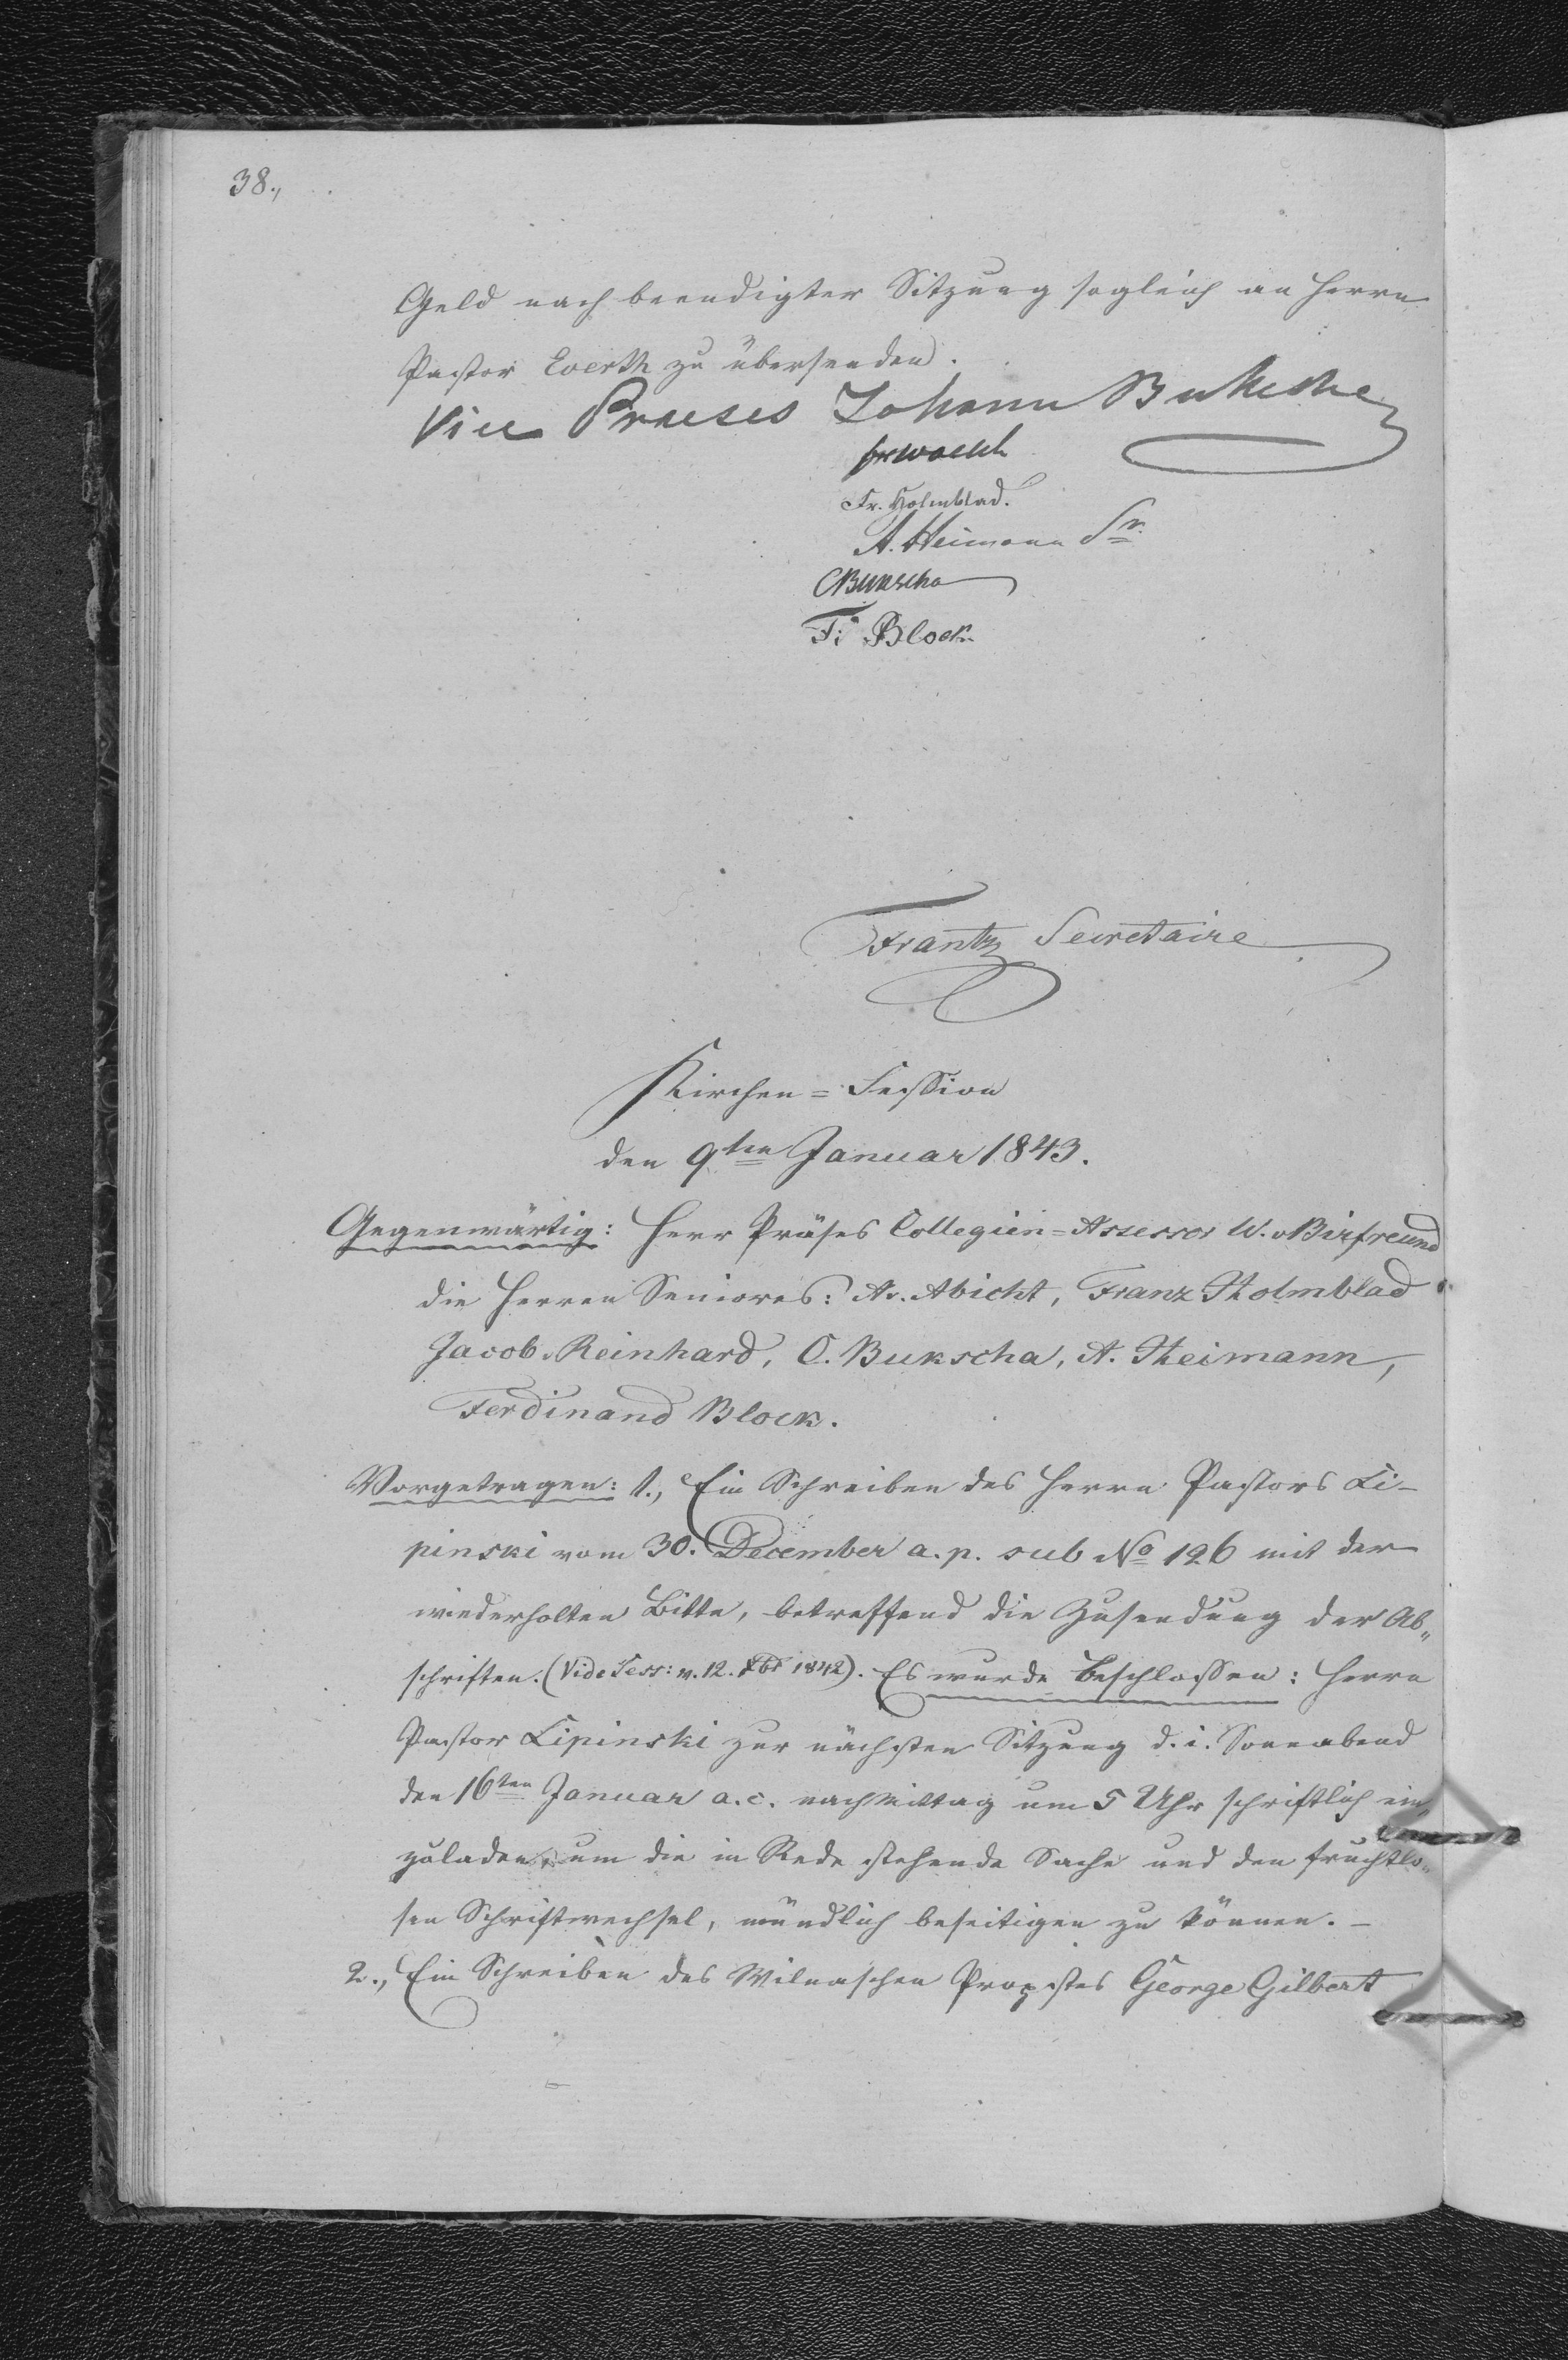 38.,
Geld nach beendigter Sitzung sogleich an Herrn
Pastor Everth zu übersenden.
Vice Praeses Johann Bukscha
Fr. Holmblad.
A. Heimann Sr.
CBukscha
F: Block
Frantz Secretaire
Kirchen=Session
den 9ten Januar 1843.
Gegenwärtig: Herr Präses Collegien=Assessor W. v Birfreund
die Herren Seniores: Ar. Abicht, Franz Holmblad
Jacob Reinhard, C. Bukscha, A. Heimann,
Ferdinand Block.
Vorgetragen: 1., Ein Schreiben des Herrn Pastors Li-
pinski vom 30. December a. p. sub No 126 mit der
wiederholten Bitte, betreffend die Zusendung der Ab„
schriften. (Vide Sess: v. 12. Xbr 1842). Es wurde beschlossen: Herrn
Pastor Lipinski zur nächsten Sitzung d. i. Sonnabend
den 16ten Januar a. c. nachmittag um 5 Uhr schriftlich ein„
zuladen, um die in Rede stehende Sache und den fruchtlo„
sen Schriftwechsel, mündlich beseitigen zu können. –
2., Ein Schreiben des Wilnaschen Propstes George Gilbert